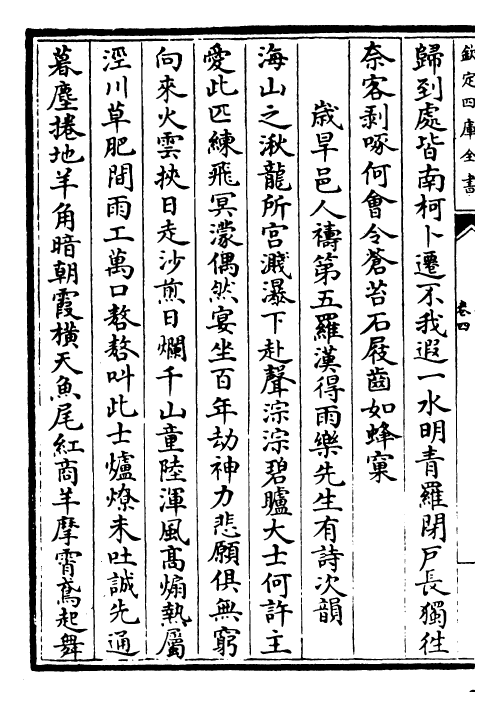 欽定四庫全書
卷四
歸到處皆南柯卜遷不我遐一水明青羅閉戸長獨徃
奈客剥啄何會令蒼苔石屐齒如蜂窠
歲旱邑人禱第五羅漢得雨樂先生有詩次韻
海山之湫龍所宫濺瀑下赴聲淙淙碧臚大士何許主
愛此匹練飛冥濛偶然宴坐百年劫神力悲願俱無窮
向來火雲挾日走沙煎日爛千山童陸渾風髙煽執屬
涇川草肥閒雨工萬口嗸嗸叫此士爐燎未吐誠先通
暮塵捲地羊角暗朝霞横天魚尾紅商羊摩霄鳶起舞